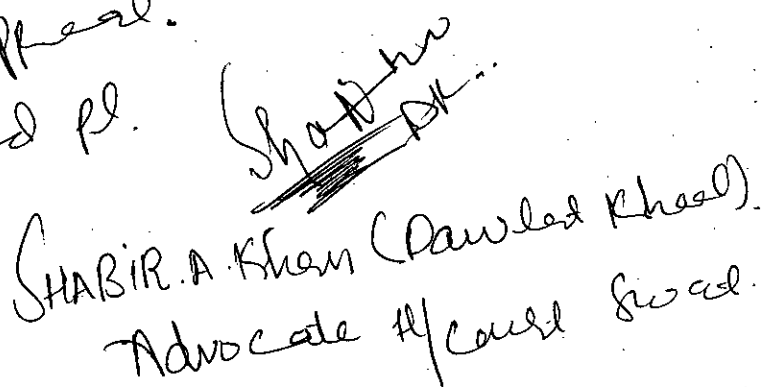 d pl.
Shabir
DK..
SHABIR.A.Khan (Dawlat Kheel).
Advocate H/Court Swat.